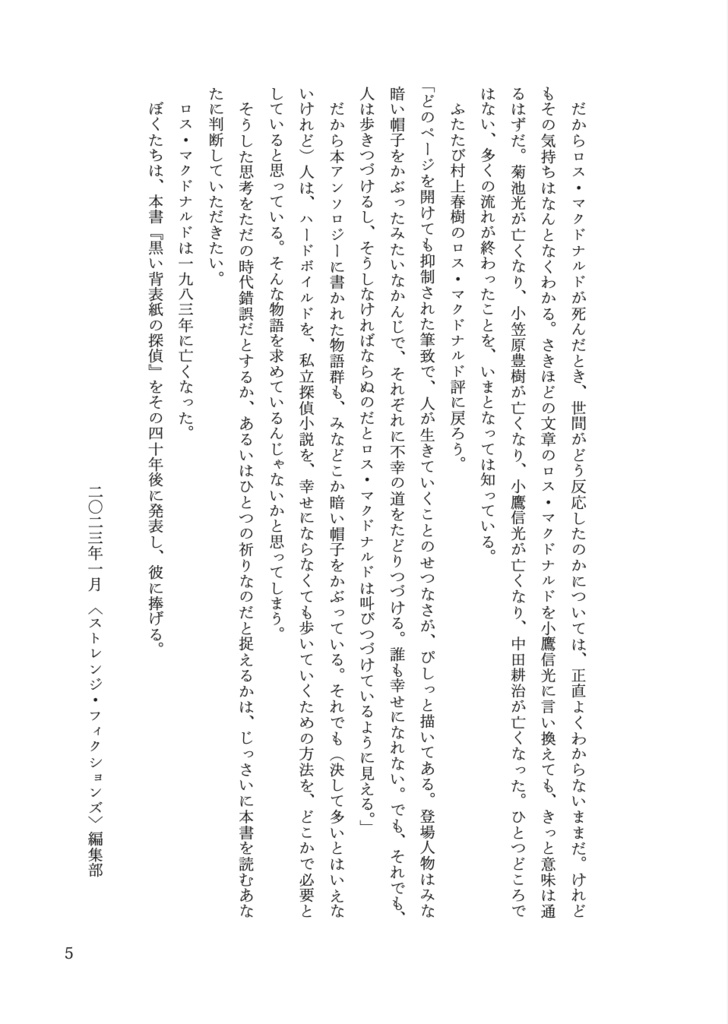 だからロス・マクドナルドが死んだとき、世間がどう反応したのかについては、正直よくわからないままだ。けれど
もその気持ちはなんとなくわかる。さきほどの文章のロス・マクドナルドを小鷹信光に言い換えても、きっと意味は通
るはずだ。菊池光が亡くなり、小笠原豊樹が亡くなり、小鷹信光が亡くなり、中田耕治が亡くなった。ひとつどころで
はない、多くの流れが終わったことを、いまとなっては知っている。
ふたたび村上春樹のロス・マクドナルド評に戻ろう。
「どのページを開けても抑制された筆致で、人が生きていくことのせつなさが、ぴしっと描いてある。登場人物はみな
暗い帽子をかぶったみたいなかんじで、それぞれに不幸の道をたどりつづける。誰も幸せになれない。でも、それでも、
人は歩きつづけるし、そうしなければならぬのだとロス・マクドナルドは叫びつづけているように見える。」
だから本アンソロジーに書かれた物語群も、みなどこか暗い帽子をかぶっている。それでも（決して多いとはいえな
いけれど）人は、ハードボイルドを、私立探偵小説を、幸せにならなくても歩いていくための方法を、どこかで必要と
していると思っている。そんな物語を求めているんじゃないかと思ってしまう。
そうした思考をただの時代錯誤だとするか、あるいはひとつの祈りなのだと捉えるかは、じっさいに本書を読むあな
たに判断していただきたい。
ロス・マクドナルドは一九八三年に亡くなった。
ぼくたちは、本書『黒い背表紙の探偵』をその四十年後に発表し、彼に捧げる。
二〇二三年一月　〈ストレンジ・フィクションズ〉編集部
5